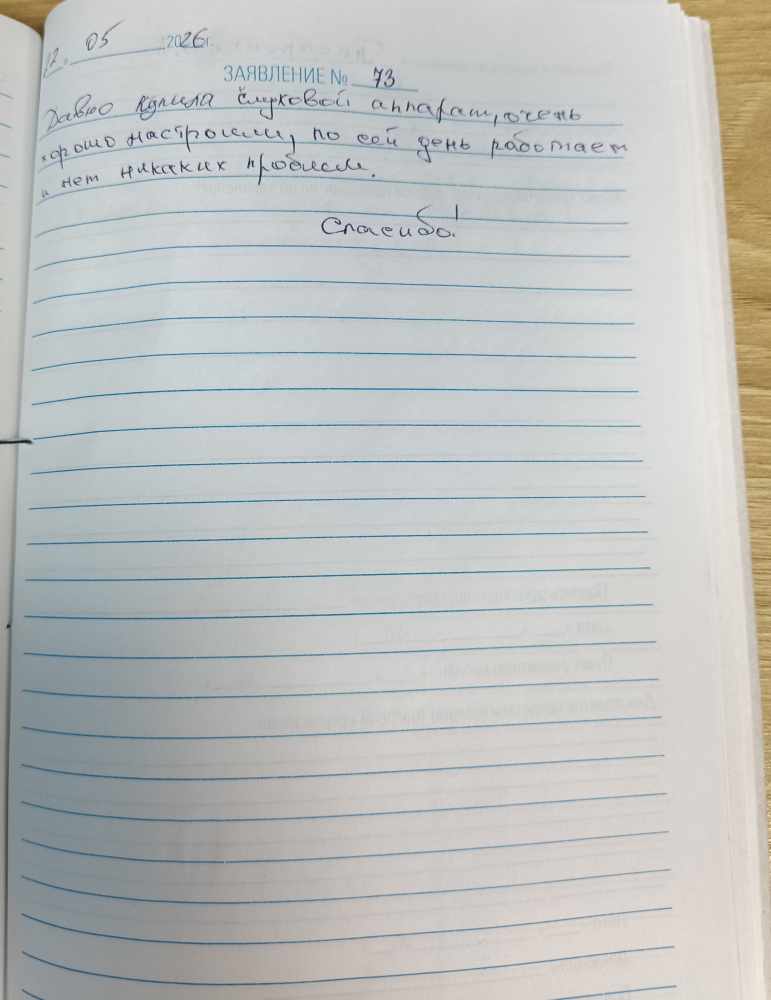 12. 05 2026г.
ЗАЯВЛЕНИЕ № 73
Давно купила слуховой аппарат, очень
хорошо настроили, по сей день работает
и нет никаких проблем.
Спасибо!